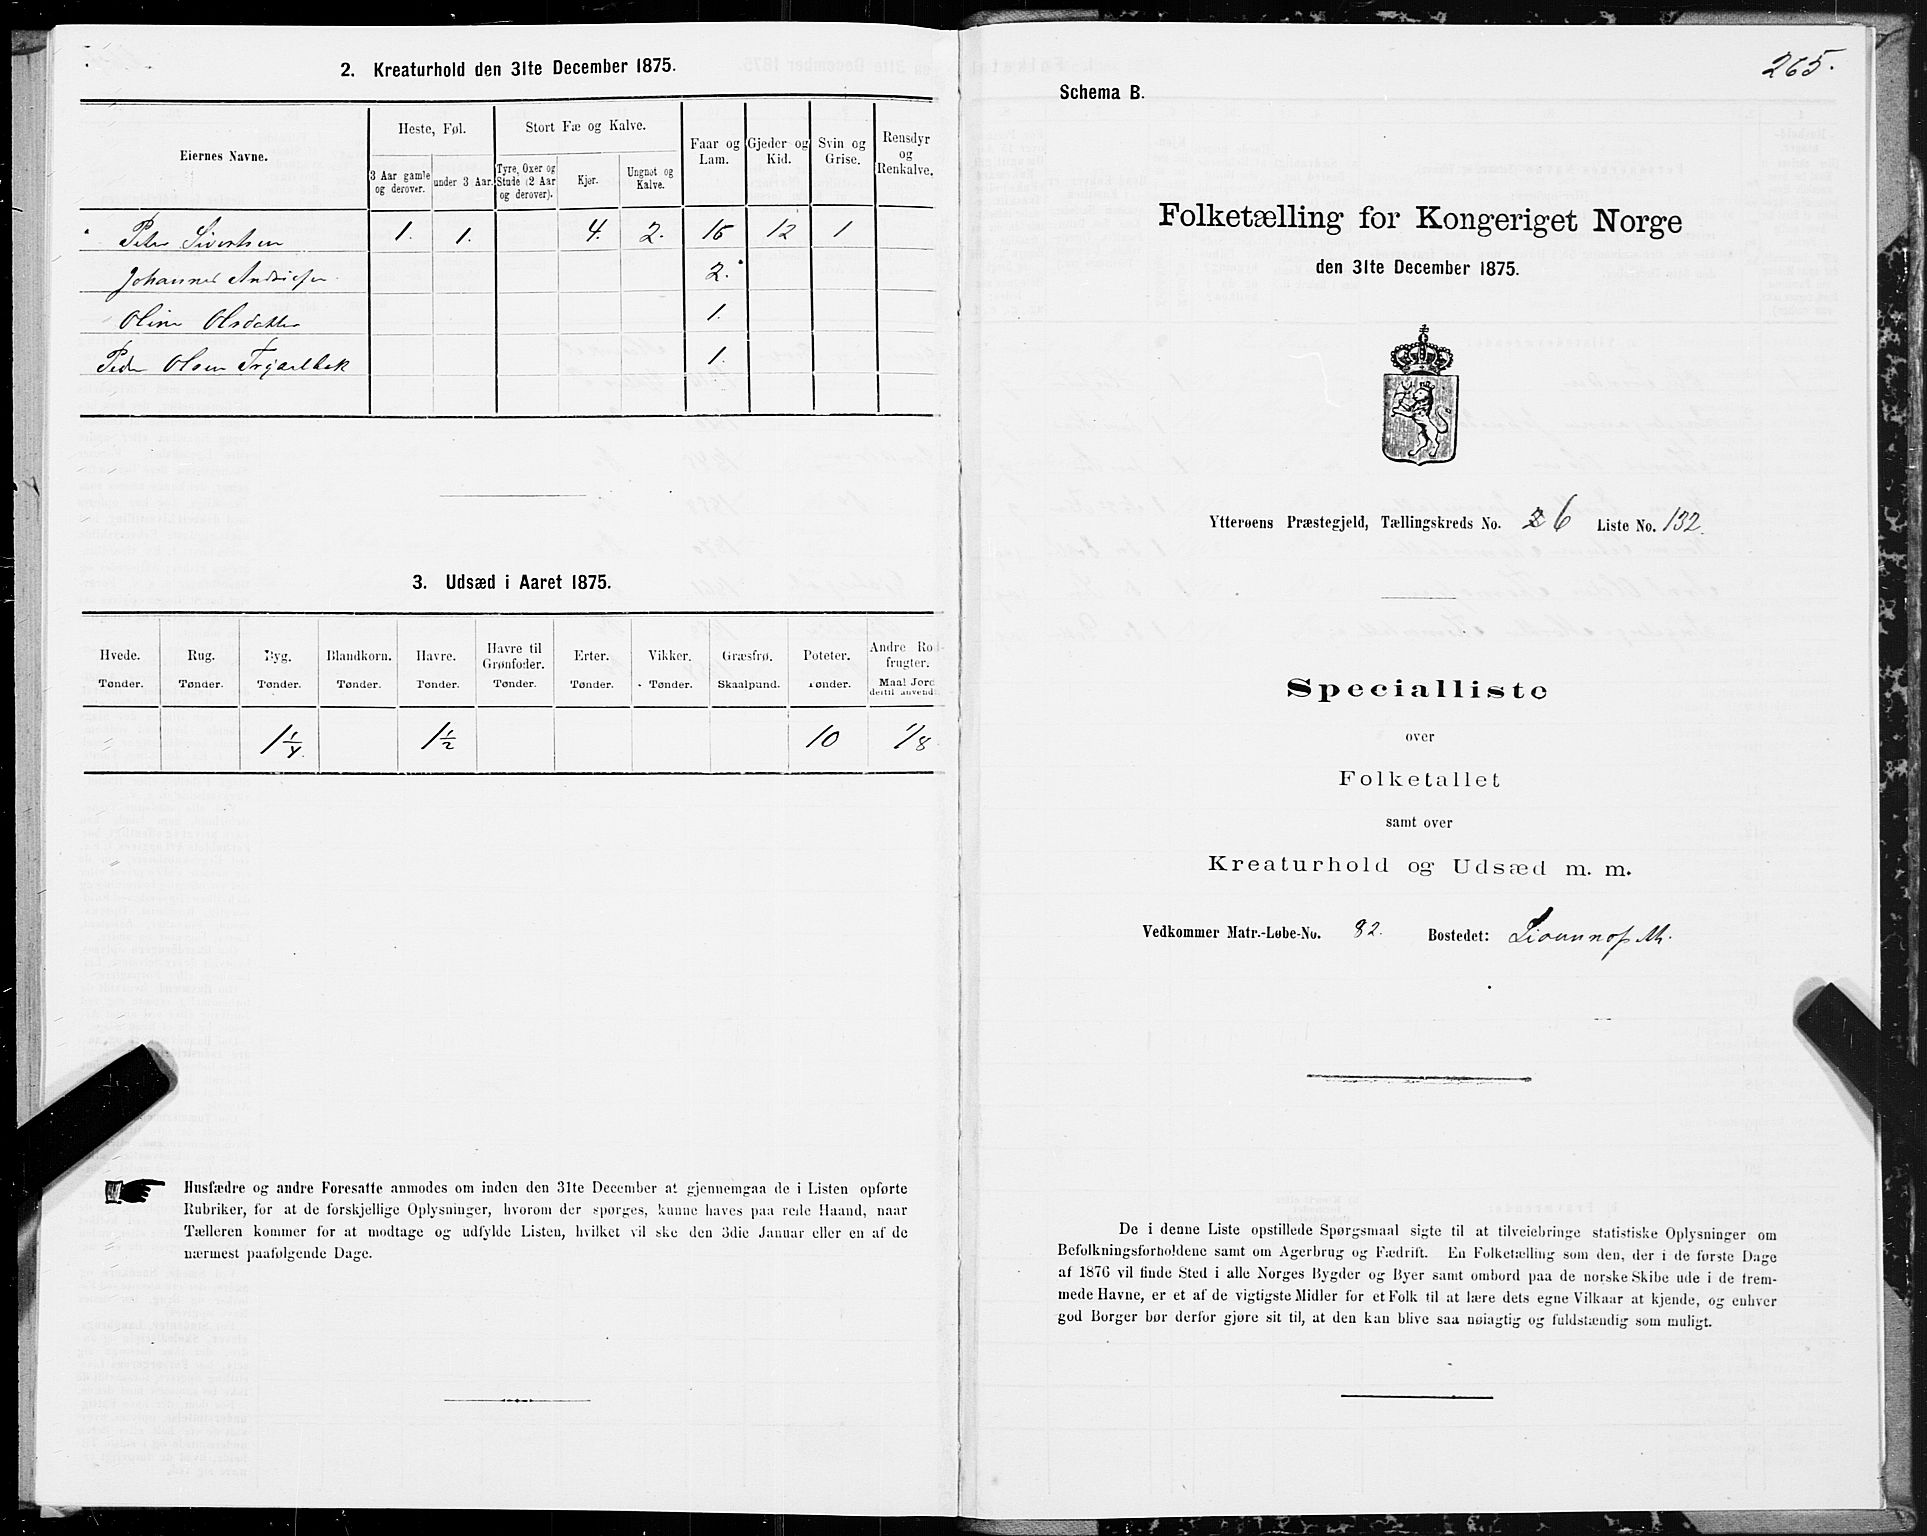 2. Kreaturhold den 31te December 1875.
Eiernes Navne.
Heste, Føl.
Stort Fæ og Kalve.
Faar og Lam.
Gjeder og Kid.
Svin og Grise.
Rensdyr og Renkalve.
3 Aar gamle og derover.
under 3 Aar.
Tyre, Oxer og Stude (2 Aar og derover).
Kjør.
Ungnøt og Kalve.
Peter Sivertsen 1. 1. 4. 2. 16 12 1
Johannes Andriesen 2.
Oline Olsdatter 1.
Peder Olsen 1.
3. Udsæd i Aaret 1875.
Hvede. Rug. Byg. Blandkorn. Havre. Havre til Grønfoder. Erter. Vikker. Græsfrø. Poteter. Andre Rodfrugter.
Tønder. Tønder. Tønder. Tønder. Tønder. Tønder. Tønder. Tønder. Skaalpund. Tønder. Maal Jord dertil anvendt.
1 1/4 1 1/2 10 1/8
Husfædre og andre Foresatte anmodes om inden den 31te December at gjennemgaa de i Listen opførte
Rubriker, for at de forskjellige Oplysninger, hvorom der spørges, kunne haves paa rede Haand, naar
Tælleren kommer for at modtage og udfylde Listen, hvilket vil ske den 3die Januar eller en af de
nærmest paafølgende Dage.
265.
Schema B.
Folketælling for Kongeriget Norge
den 31te December 1875.
Ytterøens Præstegjeld, Tællingskreds No. 6 Liste No. 132.
Specialliste
over
Folketallet
samt over
Kreaturhold og Udsæd m. m.
Vedkommer Matr.-Løbe-No. 82. Bostedet:
De i denne Liste opstillede Spørgsmaal sigte til at tilveiebringe statistiske Oplysninger om
Befolkningsforholdene samt om Agerbrug og Fædrift. En Folketælling som den, der i de første Dage
af 1876 vil finde Sted i alle Norges Bygder og Byer samt ombord paa de norske Skibe ude i de frem-
mede Havne, er et af de vigtigste Midler for et Folk til at lære dets egne Vilkaar at kjende, og enhver
god Borger bør derfor gjøre sit til, at den kan blive saa nøiagtig og fuldstændig som muligt.